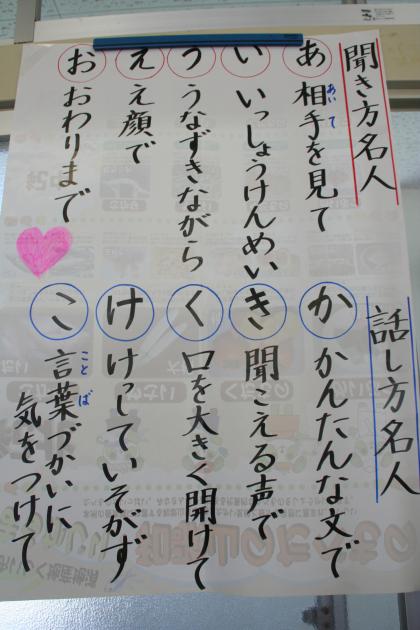 聞き方名人
あ 相手を見て
あいて
い いっしょうけんめい
う うなずきながら
え え顔で
お おわりまで
話し方名人
か かんたんな文で
き 聞こえる声で
く 口を大きく開けて
け けっしていそがず
こ 言葉づかいに
ことば
気をつけて